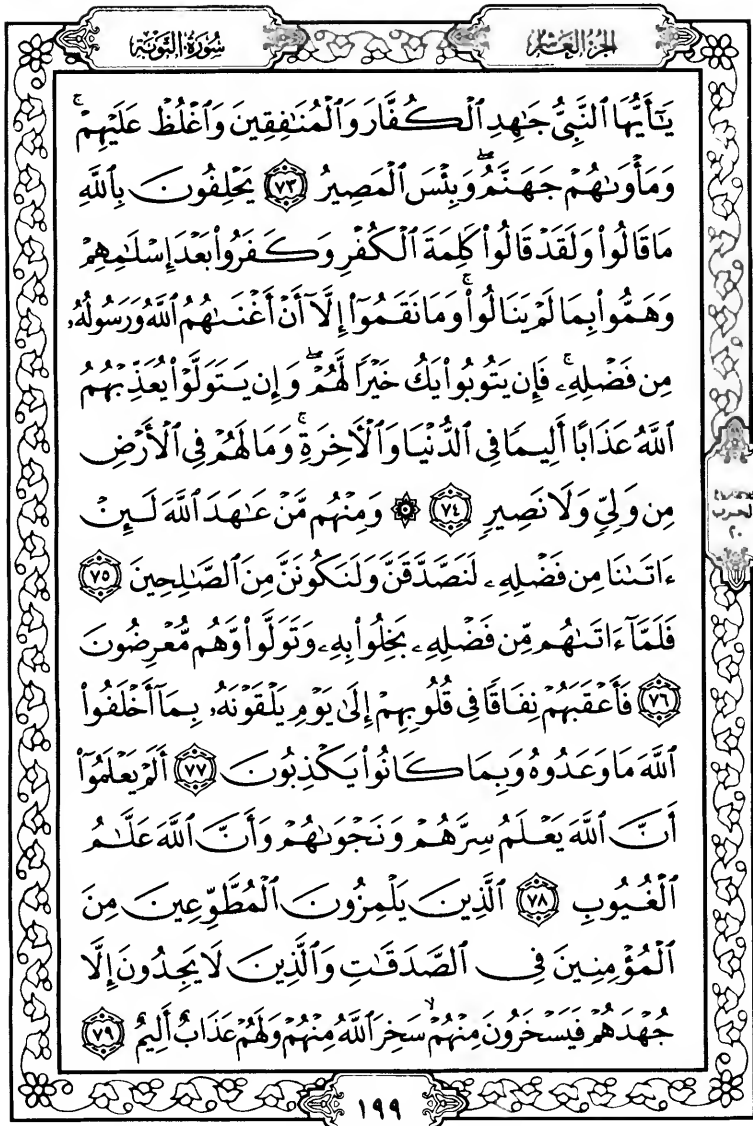 الجزء العاشر
سورة التوبة
يَـٰٓأَيُّهَا ٱلنَّبِىُّ جَـٰهِدِ ٱلْكُفَّارَ وَٱلْمُنَـٰفِقِينَ وَٱغْلُظْ عَلَيْهِمْ ۚ
وَمَأْوَىٰهُمْ جَهَنَّمُ ۖ وَبِئْسَ ٱلْمَصِيرُ ٧٣ يَحْلِفُونَ بِٱللَّهِ
مَا قَالُوا۟ وَلَقَدْ قَالُوا۟ كَلِمَةَ ٱلْكُفْرِ وَكَفَرُوا۟ بَعْدَ إِسْلَـٰمِهِمْ
وَهَمُّوا۟ بِمَا لَمْ يَنَالُوا۟ ۚ وَمَا نَقَمُوٓا۟ إِلَّآ أَنْ أَغْنَىٰهُمُ ٱللَّهُ وَرَسُولُهُۥ
مِن فَضْلِهِۦ ۚ فَإِن يَتُوبُوا۟ يَكُ خَيْرًا لَّهُمْ ۖ وَإِن يَتَوَلَّوْا۟ يُعَذِّبْهُمُ
ٱللَّهُ عَذَابًا أَلِيمًا فِى ٱلدُّنْيَا وَٱلْـَٔاخِرَةِ ۚ وَمَا لَهُمْ فِى ٱلْأَرْضِ
مِن وَلِىٍّ وَلَا نَصِيرٍ ٧٤ ۞ وَمِنْهُم مَّنْ عَـٰهَدَ ٱللَّهَ لَئِنْ
ءَاتَىٰنَا مِن فَضْلِهِۦ لَنَصَّدَّقَنَّ وَلَنَكُونَنَّ مِنَ ٱلصَّـٰلِحِينَ ٧٥
فَلَمَّآ ءَاتَىٰهُم مِّن فَضْلِهِۦ بَخِلُوا۟ بِهِۦ وَتَوَلَّوا۟ وَّهُم مُّعْرِضُونَ
٧٦ فَأَعْقَبَهُمْ نِفَاقًا فِى قُلُوبِهِمْ إِلَىٰ يَوْمِ يَلْقَوْنَهُۥ بِمَآ أَخْلَفُوا۟
ٱللَّهَ مَا وَعَدُوهُ وَبِمَا كَانُوا۟ يَكْذِبُونَ ٧٧ أَلَمْ يَعْلَمُوٓا۟
أَنَّ ٱللَّهَ يَعْلَمُ سِرَّهُمْ وَنَجْوَىٰهُمْ وَأَنَّ ٱللَّهَ عَلَّـٰمُ
ٱلْغُيُوبِ ٧٨ ٱلَّذِينَ يَلْمِزُونَ ٱلْمُطَّوِّعِينَ مِنَ
ٱلْمُؤْمِنِينَ فِى ٱلصَّدَقَـٰتِ وَٱلَّذِينَ لَا يَجِدُونَ إِلَّا
جُهْدَهُمْ فَيَسْخَرُونَ مِنْهُمْ ۙ سَخِرَ ٱللَّهُ مِنْهُمْ وَلَهُمْ عَذَابٌ أَلِيمٌ ٧٩
الحزب
٢٠
١٩٩